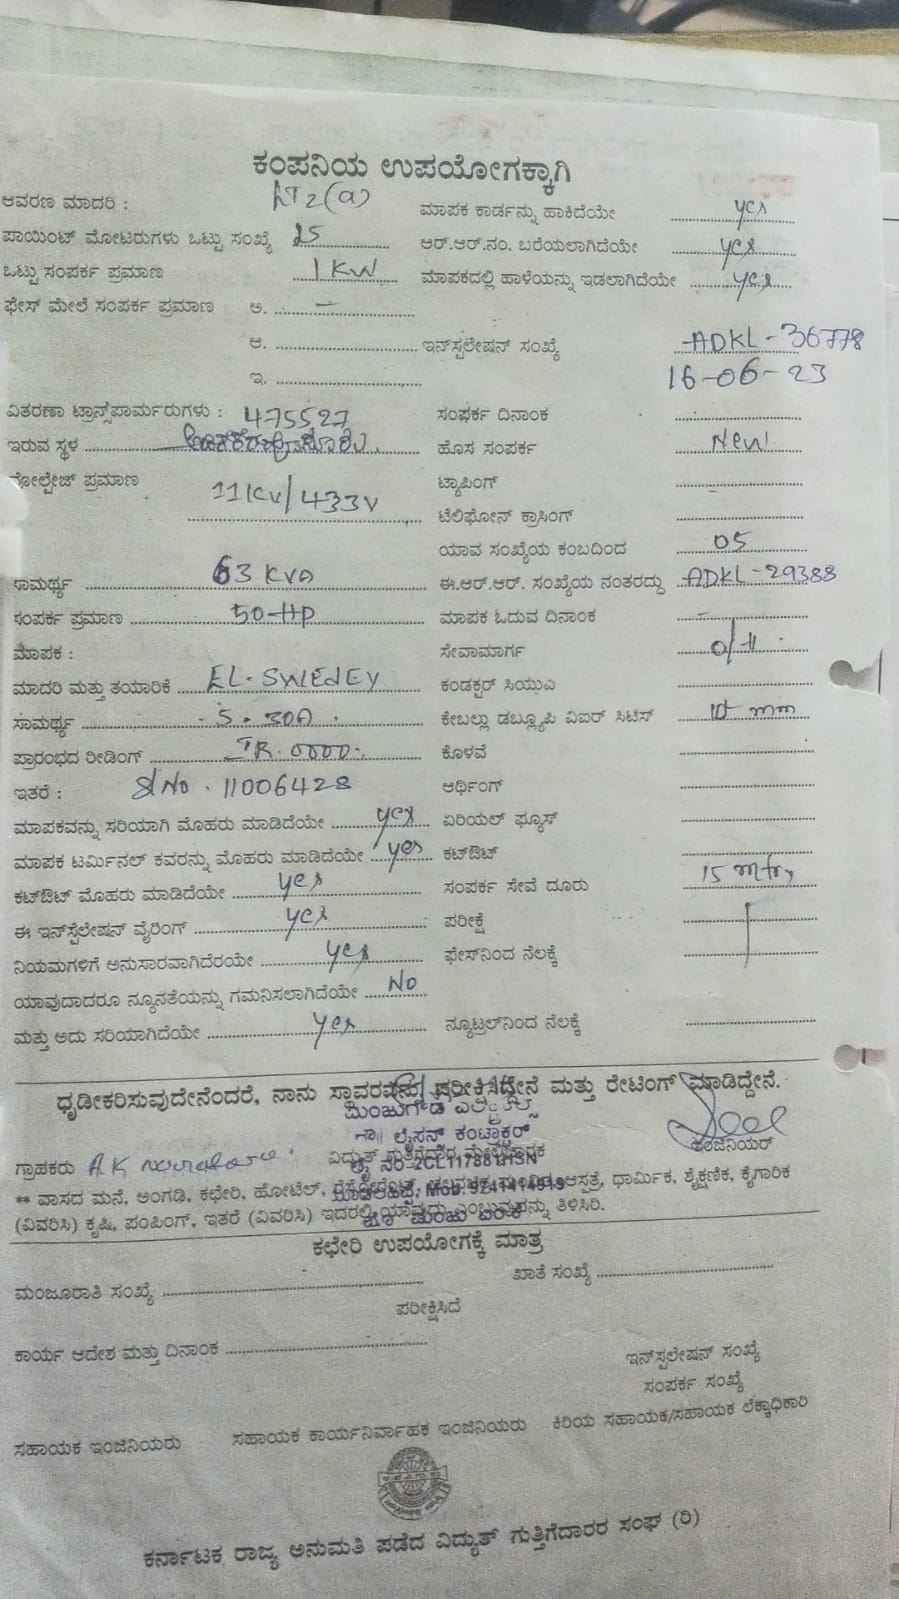 ಕಂಪನಿಯ ಉಪಯೋಗಕ್ಕಾಗಿ
ಆವರಣ ಮಾದರಿ : LT2(a) ಮಾಪಕ ಕಾರ್ಡನ್ನು ಹಾಕಿದೆಯೇ yes
ಪಾಯಿಂಟ್ ಮೋಟರುಗಳು ಒಟ್ಟು ಸಂಖ್ಯೆ ಆರ್.ಆರ್.ನಂ. ಬರೆಯಲಾಗಿದೆಯೇ yes
ಒಟ್ಟು ಸಂಪರ್ಕ ಪ್ರಮಾಣ 1 KW ಮಾಪಕದಲ್ಲಿ ಹಾಳೆಯನ್ನು ಇಡಲಾಗಿದೆಯೇ yes
ಫೇಸ್ ಮೇಲೆ ಸಂಪರ್ಕ ಪ್ರಮಾಣ ಅ. –
ಆ. ಇನ್‌ಸ್ಟಲೇಷನ್ ಸಂಖ್ಯೆ ADKL-36778
ಇ. 16-06-23
ವಿತರಣಾ ಟ್ರಾನ್ಸ್‌ಫಾರ್ಮರುಗಳು : 475527 ಸಂಪರ್ಕ ದಿನಾಂಕ
ಇರುವ ಸ್ಥಳ ಹೊಸ ಸಂಪರ್ಕ New
ವೋಲ್ಟೇಜ್ ಪ್ರಮಾಣ 11KV/433V ಟ್ಯಾಪಿಂಗ್
ಟೆಲಿಫೋನ್ ಕ್ರಾಸಿಂಗ್
ಯಾವ ಸಂಖ್ಯೆಯ ಕಂಬದಿಂದ 05
ಸಾಮರ್ಥ್ಯ 63 KVA ಈ.ಆರ್.ಆರ್. ಸಂಖ್ಯೆಯ ನಂತರದ್ದು ADKL-29388
ಸಂಪರ್ಕ ಪ್ರಮಾಣ 50-HP ಮಾಪಕ ಓದುವ ದಿನಾಂಕ –
ಮಾಪಕ : ಸೇವಾಮಾರ್ಗ o/H
ಮಾದರಿ ಮತ್ತು ತಯಾರಿಕೆ EL-SWEDEY ಕಂಡಕ್ಟರ್ ಸಿಯುಎ
ಸಾಮರ್ಥ್ಯ 5-30A ಕೇಬಲ್ಲು ಡಬ್ಲ್ಯೂಪಿ ವಿಐರ್ ಸಿಟಿಸ್ 10 mm
ಪ್ರಾರಂಭದ ರೀಡಿಂಗ್ IR. 0000 ಕೊಳವೆ
ಇತರೆ : Sl No. 11006428 ಆರ್ಥಿಂಗ್
ಮಾಪಕವನ್ನು ಸರಿಯಾಗಿ ಮೊಹರು ಮಾಡಿದೆಯೇ yes ಏರಿಯಲ್ ಫ್ಯೂಸ್
ಮಾಪಕ ಟರ್ಮಿನಲ್ ಕವರನ್ನು ಮೊಹರು ಮಾಡಿದೆಯೇ yes ಕಟ್‌ಔಟ್
ಕಟ್‌ಔಟ್ ಮೊಹರು ಮಾಡಿದೆಯೇ yes ಸಂಪರ್ಕ ಸೇವೆ ದೂರು 15 mtrs
ಈ ಇನ್‌ಸ್ಟೆಲೇಷನ್ ವೈರಿಂಗ್ yes ಪರೀಕ್ಷೆ
ನಿಯಮಗಳಿಗೆ ಅನುಸಾರವಾಗಿದೆರಯೇ yes ಫೇಸ್‌ನಿಂದ ನೆಲಕ್ಕೆ
ಯಾವುದಾದರೂ ನ್ಯೂನತೆಯನ್ನು ಗಮನಿಸಲಾಗಿದೆಯೇ No
ಮತ್ತು ಅದು ಸರಿಯಾಗಿದೆಯೇ yes ನ್ಯೂಟ್ರಲ್‌ನಿಂದ ನೆಲಕ್ಕೆ
ಧೃಡೀಕರಿಸುವುದೇನೆಂದರೆ, ನಾನು ಸ್ಥಾವರವನ್ನು ಪರೀಕ್ಷಿಸಿದ್ದೇನೆ ಮತ್ತು ರೇಟಿಂಗ್ ಮಾಡಿದ್ದೇನೆ.
ಲೈಸನ್ಸ್ ಕಂಟ್ರಾಕ್ಟರ್
ಗ್ರಾಹಕರು ವಿದ್ಯುತ್ ಗುತ್ತಿಗೆದಾರ ಮೇಲ್ವಿಚಾರಕ ಇಂಜಿನಿಯರ್
** ವಾಸದ ಮನೆ, ಅಂಗಡಿ, ಕಛೇರಿ, ಹೋಟೆಲ್, ಆಸ್ಪತ್ರೆ, ಧಾರ್ಮಿಕ, ಶೈಕ್ಷಣಿಕ, ಕೈಗಾರಿಕೆ
(ವಿವರಿಸಿ) ಕೃಷಿ, ಪಂಪಿಂಗ್, ಇತರೆ (ವಿವರಿಸಿ) ಇದರಲ್ಲಿ ಯಾವುದು ಎಂಬುವುದನ್ನು ತಿಳಿಸಿರಿ.
ಕಛೇರಿ ಉಪಯೋಗಕ್ಕೆ ಮಾತ್ರ
ಮಂಜೂರಾತಿ ಸಂಖ್ಯೆ ಖಾತೆ ಸಂಖ್ಯೆ
ಪರೀಕ್ಷಿಸಿದೆ
ಕಾರ್ಯ ಆದೇಶ ಮತ್ತು ದಿನಾಂಕ ಇನ್‌ಸ್ಟಲೇಷನ್ ಸಂಖ್ಯೆ
ಸಂಪರ್ಕ ಸಂಖ್ಯೆ
ಸಹಾಯಕ ಇಂಜಿನಿಯರು ಸಹಾಯಕ ಕಾರ್ಯನಿರ್ವಾಹಕ ಇಂಜಿನಿಯರು ಕಿರಿಯ ಸಹಾಯಕ/ಸಹಾಯಕ ಲೆಕ್ಕಾಧಿಕಾರಿ
ಕರ್ನಾಟಕ ರಾಜ್ಯ ಅನುಮತಿ ಪಡೆದ ವಿದ್ಯುತ್ ಗುತ್ತಿಗೆದಾರರ ಸಂಘ (ರಿ)